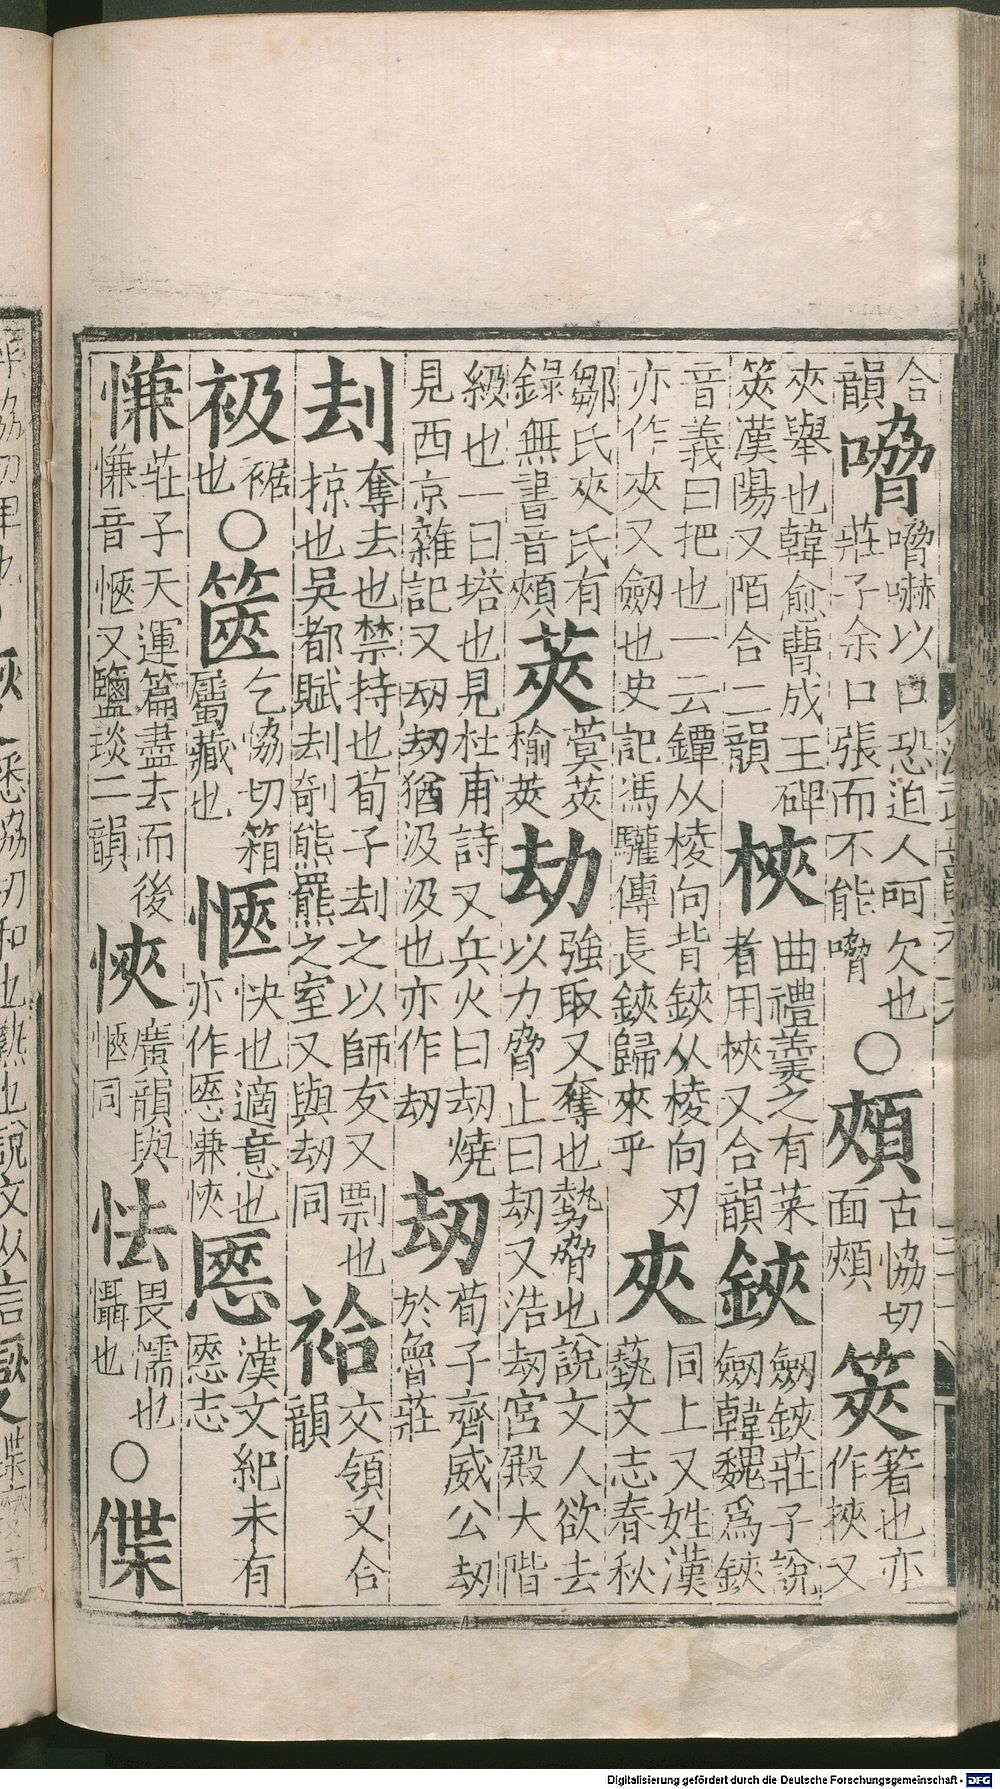 合韻嗋嗋嚇以口恐迫人呵欠也莊子余口張而不能嗋○頰古協切面頰筴箸也亦作挾又
夾舉也韓愈曹成王碑筴漢陽又陌合二韻梜曲禮羹之有菜者用梜又合韻鋏劒鋏莊子說劒韓魏爲鋏
音義曰把也一云鐔从稜向背鋏从稜向刃亦作夾又劒也史記馮驩傳長鋏歸來乎夾同上又姓漢藝文志春秋
鄒氏夾氏有錄無書音頰莢蓂莢榆莢劫強取又奪也勢脅也說文人欲去以力脅止曰刧又浩刧宮殿大階
級也一曰塔也見杜甫詩又兵火曰刧燒見西京雜記又刧刧猶汲汲也亦作刧刧荀子齊威公刧於魯莊
刦奪去也禁持也荀子刦之以師友又剽也掠也吳都賦刦剞熊羆之室又與刧同袷交領又合韻
衱裾也○篋乞協切箱屬藏也愜快也適意也亦作㥦慊悏㥦漢文紀未有㥦志
慊莊子天運篇盡去而後慊音愜又鹽琰二韻悏廣韻與愜同怯畏懦也懾也○偞
Digitalisierung gefördert durch die Deutsche Forschungsgemeinschaft - DFG